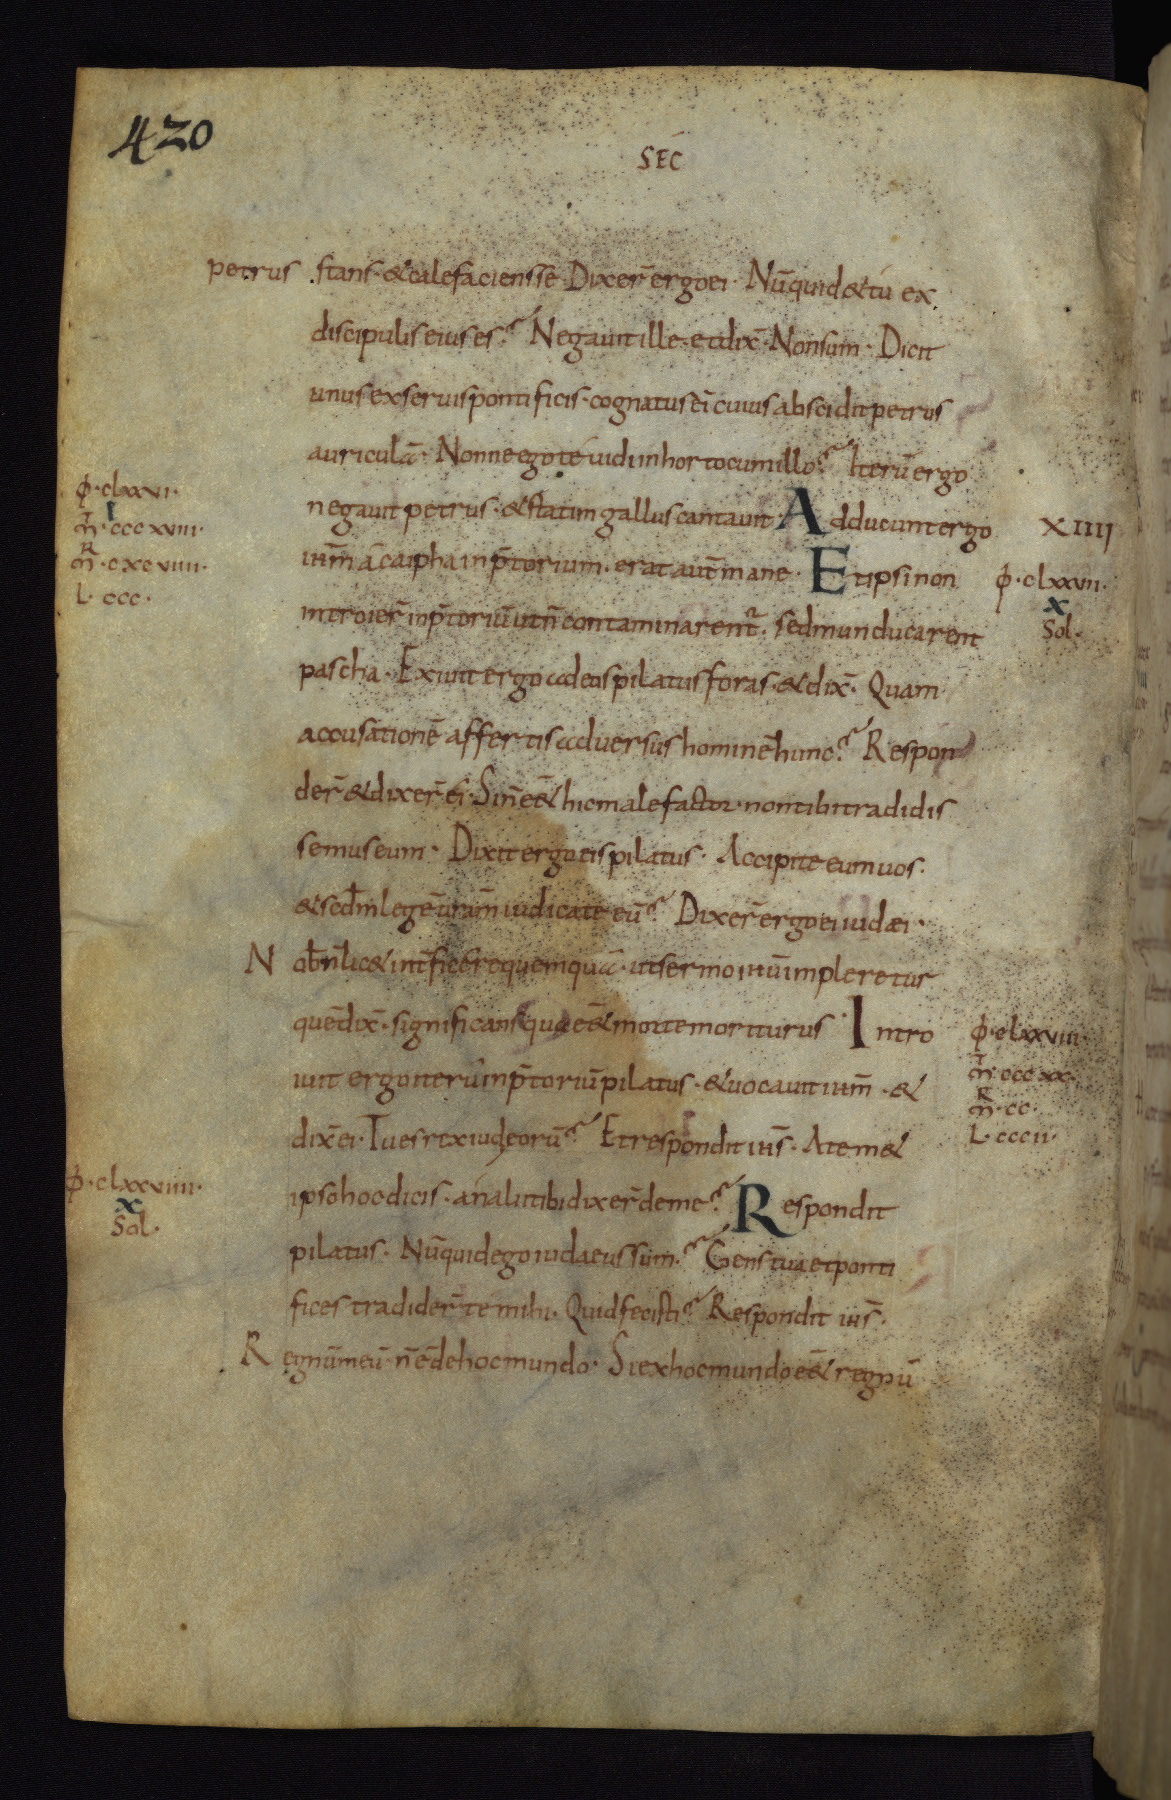 420
SEC
petrus stans · & calefaciens sē · Dixer̄ ergo ei · Nūquid & tu ex
discipulis eius es? Negauit ille · et dix̄ · Non sum · Dicit
unus ex seruis pontificis · cognatus ei cuius abscidit petrus
auriculā · Nonne ego te uidi in horto cum illo? Iterū ergo
negauit petrus · & statim gallus cantauit · Adducunt ergo
ihm̄ a caipha in p̄torium · erat aut̄ mane · Et ipsi non
introier̄ in p̄toriū ut n̄ contaminarent᷑ · sed manducarent
pascha · Exiuit ergo ad eos pilatus foras · & dix̄ · Quam
accusationē affertis aduersus hominē hunc? Respon
der̄ & dixer̄ ei · Si n̄ e&̄ hic malefactor · non tibi tradidis
semus eum · Dixit ergo eis pilatus · Accipite eum uos ·
& scdm̄ legē uram̄ iudicate eū? Dixer̄ ergo ei iudæi ·
Nob̄ n̄ lic& int̄ficere quemquā · ut sermo ihū impleretur
quē dix̄ · significans qua e&̄ morte moriturus · Intro
iuit ergo iterū in p̄toriū pilatus · & uocauit ihm̄ · &
dix̄ ei · Tu es rex iudęorū? Et respondit ihs̄ · A tem&
ipso hoc dicis · an alii tibi dixer̄ de me? Respondit
pilatus · Nūquid ego iudaeus sum? Gens tua et ponti
fices tradider̄ te mihi · Quid fecisti? Respondit ihs̄ ·
Regnū meū n̄ ē de hoc mundo · Si ex hoc mundo e&̄ regnū
φ · clxxvi ·
I
m̄ · cccxviii ·
m̄ᴿ · cxcviiii ·
L · ccc ·
XIIII
φ · clxxvii ·
X
Sol ·
φ · clxxviii ·
m̄ · cccxx ·
m̄ᴿ · cc ·
L · cccii ·
φ · clxxviiii ·
X
Sol ·